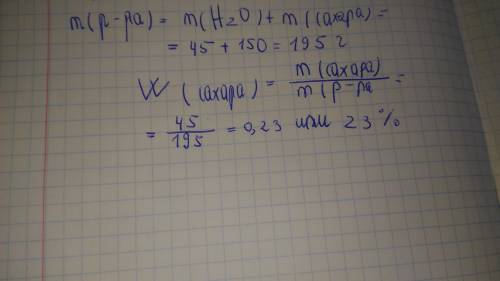 m(р-ра) = m(H2O) + m((сахара) =
= 45 + 150 = 195 г
W (сахара) = m(сахара) / m(р-ра =
= 45 / 195 = 0,23 или 23%